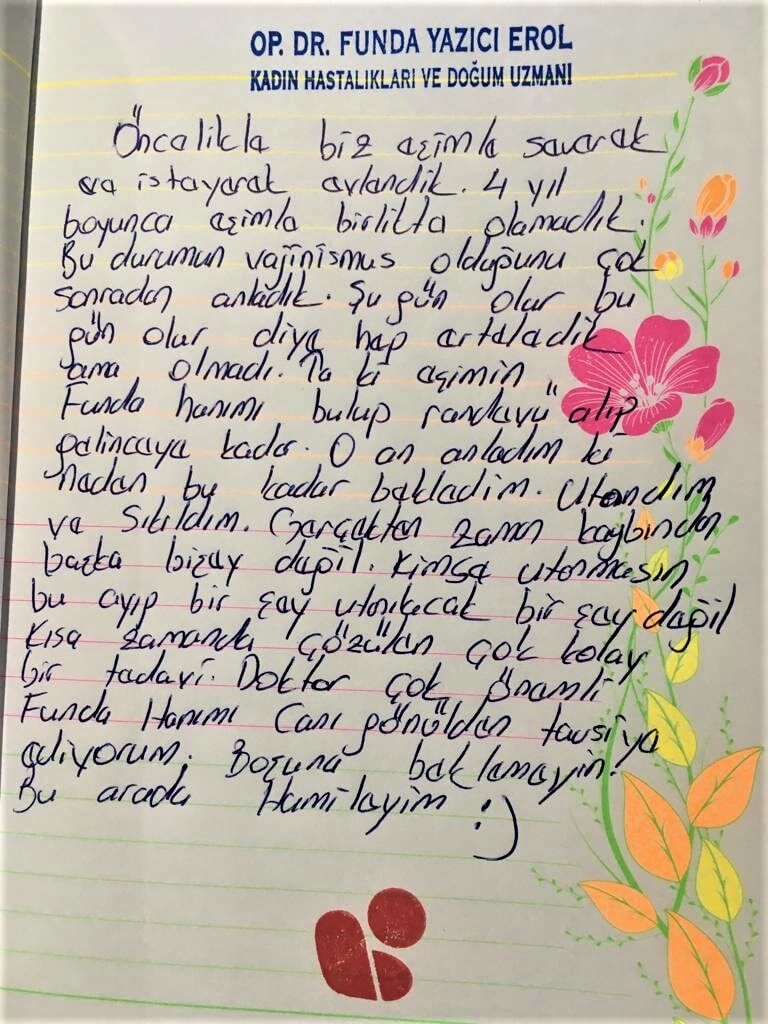 OP. DR. FUNDA YAZICI EROL
KADIN HASTALIKLARI VE DOĞUM UZMANI
Öncelikle biz eşimle severek
ve isteyerek evlendik. 4 yıl
boyunca eşimle birlikte olamadık.
Bu durumun vajinismus olduğunu çok
sonradan anladık. Şu gün olur bu
gün olur diye hep erteledik
ama olmadı. Ta ki eşimin
Funda hanımı bulup randavü alıp
gelinceye kadar. O an anladım ki
neden bu kadar bekledim. Utandım
ve Sıkıldım. Gerçekten zaman kaybından
başka bişey değil. Kimse utanmasın
bu ayıp bir şey utanılacak bir şey değil
Kısa zamanda çözülen çok kolay
bir tedavi. Doktor çok önemli
Funda Hanımı Canı gönülden tavsiye
ediyorum. Boşuna beklemeyin!
Bu arada Hamileyim :)